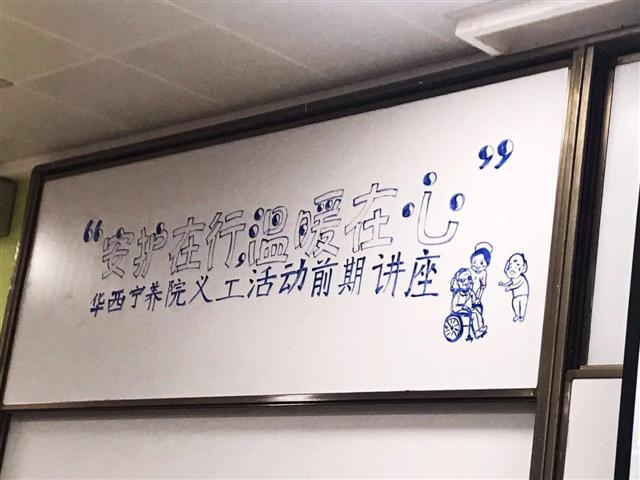 “安护在行温暖在心”
华西宁养院义工活动前期讲座